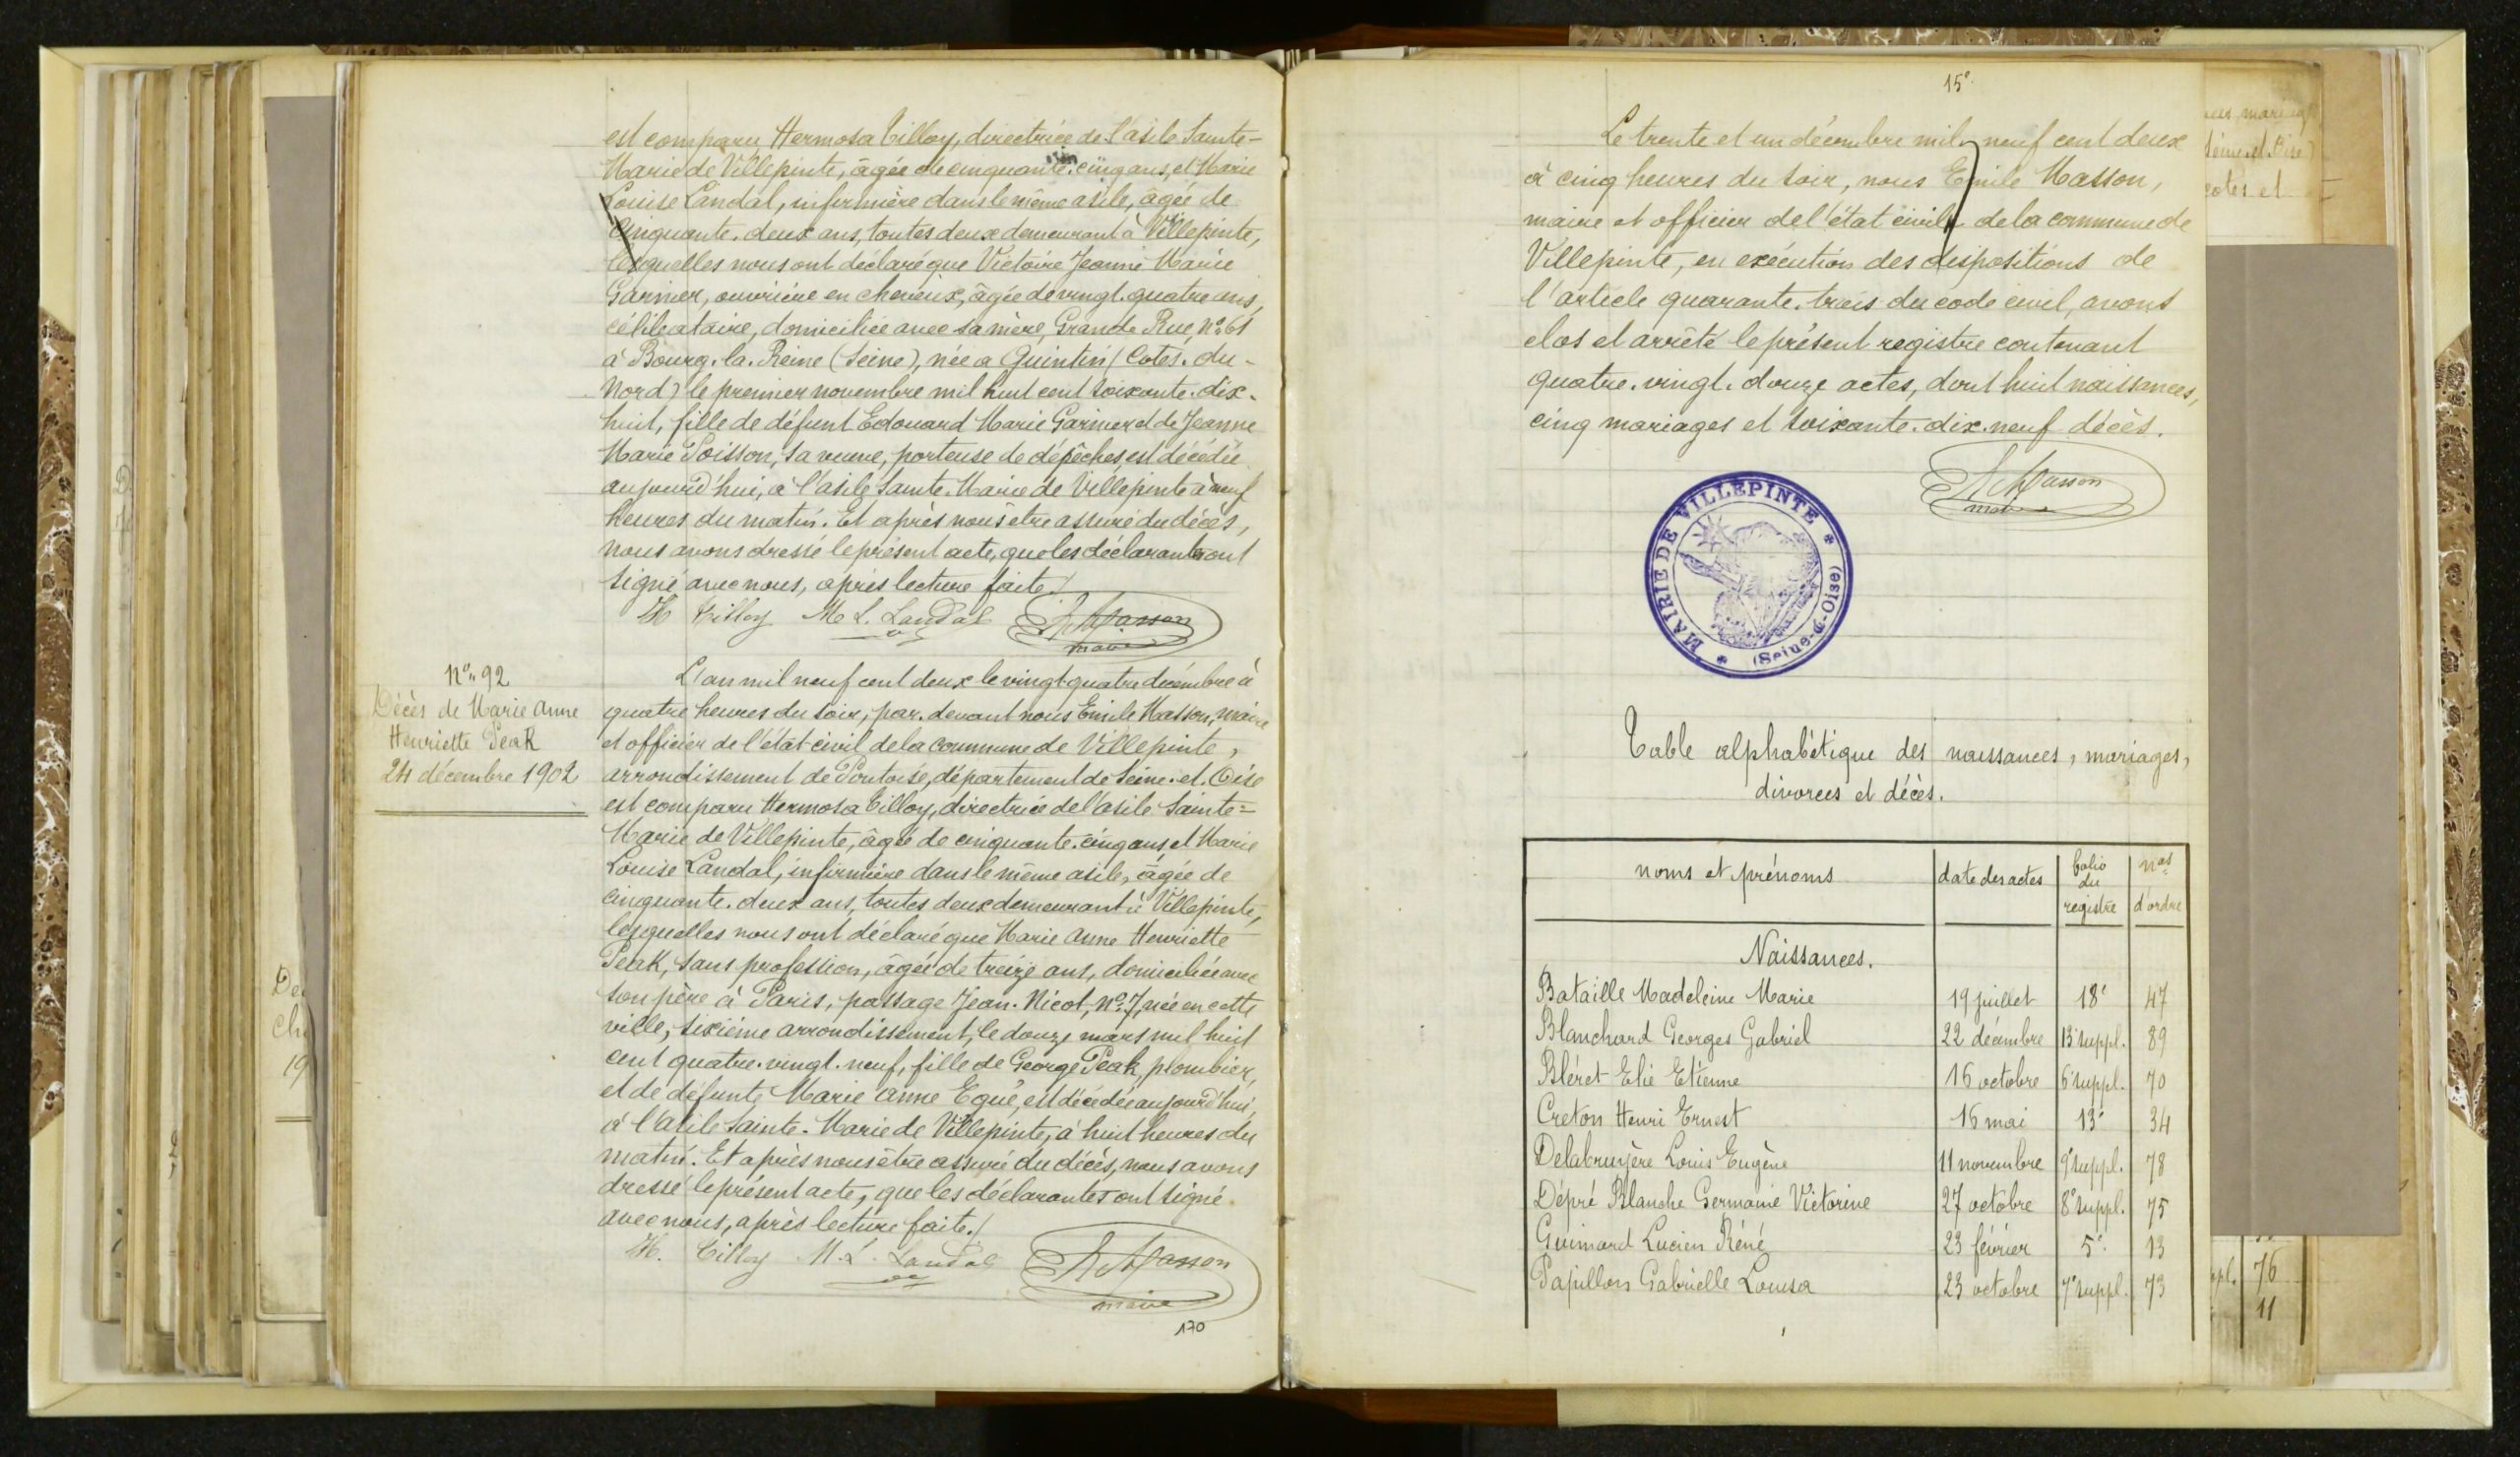 est comparu Hermosa Tilloy, directrice de l'asile Sainte-
Marie de Villepinte, âgée de cinquante.cinq ans, et Marie
Louise Landal, infirmière dans le même asile, âgée de
cinquante.deux ans, toutes deux demeurant à Villepinte,
lesquelles nous ont déclaré que Victoire Jeanne Marie
Garnier, ouvrière en cheveux, âgée de vingt.quatre ans,
célibataire, domiciliée avec sa mère, Grande Rue, No 61
à Bourg.la.Reine (Seine), née à Quintin (Cotes.du-
Nord) le premier novembre mil huit cent soixante.dix-
huit, fille de défunt Edouard Marie Garnier et de Jeanne
Marie Poisson, sa veuve, porteuse de dépêches, est décédée
aujourd'hui, à l'asile Sainte.Marie de Villepinte à neuf
heures du matin. Et après nous être assuré du décès,
nous avons dressé le présent acte, que les déclarantes ont
signé avec nous, après lecture faite./
H Tilloy M L. Landal E Masson
maire
No 92
Décès de Marie Anne
Henriette Peak
24 décembre 1902
L'an mil neuf cent deux le vingt-quatre décembre à
quatre heures du soir, par.devant nous Emile Masson, maire
et officier de l'état civil de la commune de Villepinte,
arrondissement de Pontoise, département de Seine.et.Oise
est comparu Hermosa Tilloy, directrice de l'asile Sainte=
Marie de Villepinte, âgée de cinquante.cinq ans, et Marie
Louise Landal, infirmière dans le même asile, âgée de
cinquante.deux ans, toutes deux demeurant à Villepinte,
lesquelles nous ont déclaré que Marie Anne Henriette
Peak, sans profession, âgée de treize ans, domiciliée avec
son père à Paris, passage Jean.Nicot, No 7, née en cette
ville, sixième arrondissement, le douze mars mil huit
cent quatre.vingt.neuf, fille de George Peak, plombier,
et de défunte Marie Anne Egué, est décédée aujourd'hui,
à l'asile Sainte.Marie de Villepinte, à huit heures du
matin. Et après nous être assuré du décès, nous avons
dressé le présent acte, que les déclarantes ont signé
avec nous, après lecture faite./
H. Tilloy M.L. Landal E Masson
maire
170
15e
Le trente et un décembre mil neuf cent deux
à cinq heures du soir, nous Emile Masson,
maire et officier de l'état civil de la commune de
Villepinte, en exécution des dispositions de
l'article quarante.trois du code civil, avons
clos et arrêté le présent registre contenant
quatre.vingt.douze actes, dont huit naissances,
cinq mariages et soixante.dix.neuf décès.
E Masson
maire
MAIRIE DE VILLEPINTE
(Seine-&-Oise)
Table alphabétique des naissances, mariages,
divorces et décès.
noms et prénoms date des actes folio du registre nos d'ordre
Naissances.
Bataille Madeleine Marie 19 juillet 18e 47
Blanchard Georges Gabriel 22 décembre 13e suppl. 89
Bléret Elie Etienne 16 octobre 6e suppl. 70
Creton Henri Ernest 16 mai 13e 34
Delabruyère Louis Eugène 11 novembre 9e suppl. 78
Dépré Blanche Germaine Victorine 27 octobre 8e suppl. 75
Guimard Lucien Réné 23 février 5e 13
Papillon Gabrielle Louisa 23 octobre 7e suppl. 73
76
11